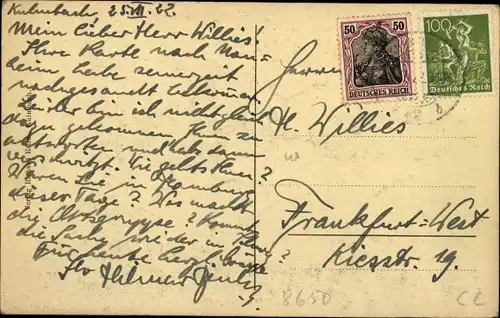 Kulmbach, 25.VII.22.
Mein lieber Herr Willies!
Ihre Karte nach
heim habe seinerzeit
nachgesandt bekommen
leider bin ich nicht gleich
dazu gekommen Ihnen zu
antworten und hab dann
Wie geht's Ihnen?
Waren Sie in Hamburg
dieser Tage? Was macht
die Ortsgruppe? Kommt
die Sache wieder in
Für heute herzl. Grüsse
Ihr Hilmar
50 50
DEUTSCHES REICH
100
Deutsches Reich
Herrn
H. Willies
Frankfurt-West
Kiesstr. 19.
8650